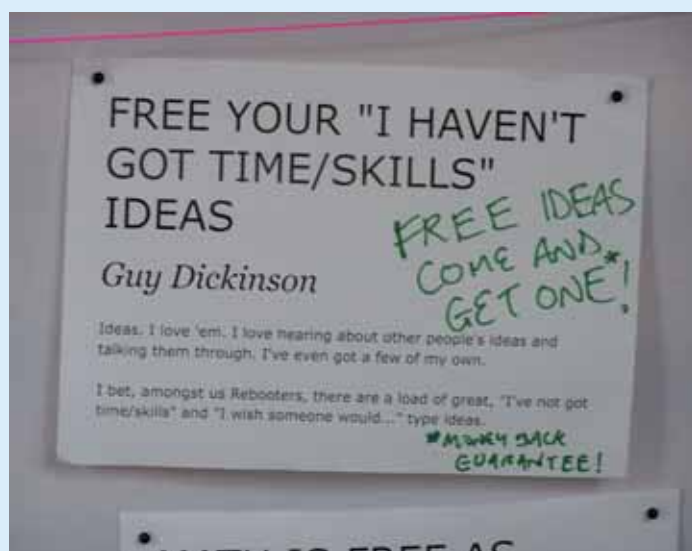 FREE YOUR "I HAVEN'T
GOT TIME/SKILLS"
IDEAS
Guy Dickinson
FREE IDEAS
COME AND
GET ONE*!
Ideas. I love 'em. I love hearing about other people's ideas and
talking them through. I've even got a few of my own.
I bet, amongst us Rebooters, there are a load of great, "I've not got
time/skills" and "I wish someone would..." type ideas.
*MONEY BACK
GUARANTEE!
IS FREE AS